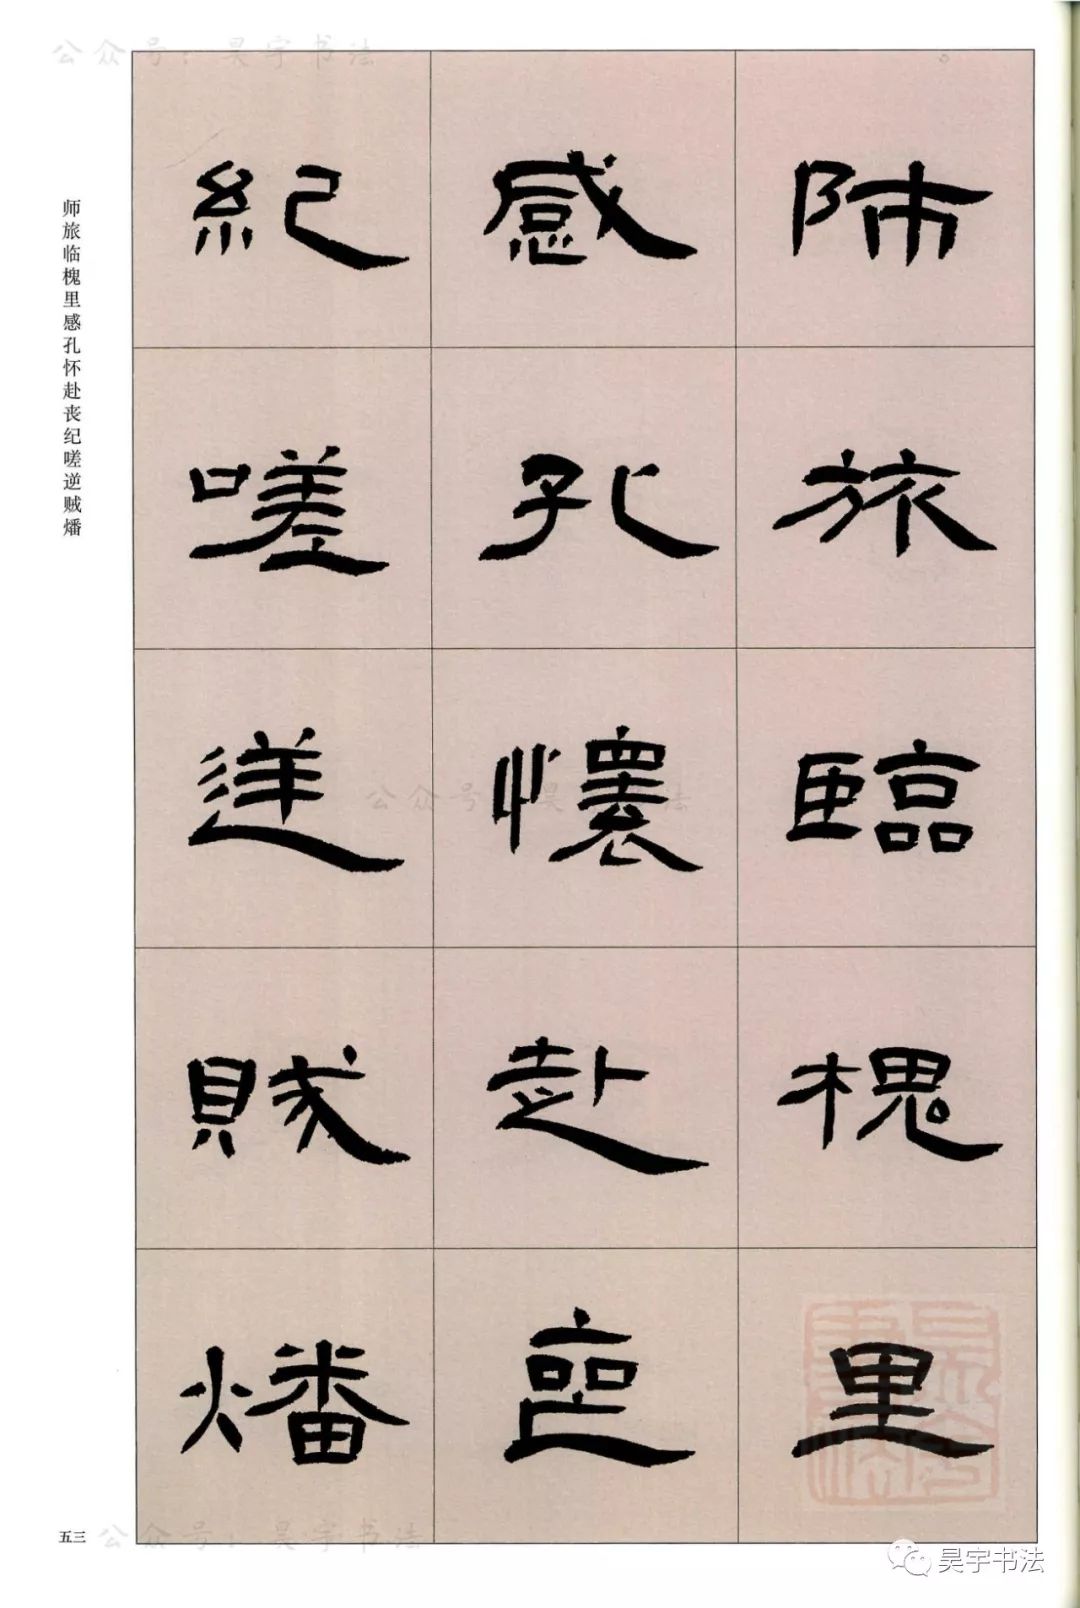 公众号：昊宇书法
師旅臨槐里
感孔懷赴喪
紀嗟逆賊燔
师旅临槐里感孔怀赴丧纪嗟逆贼燔
公众号：昊宇书法
五三
公众号：昊宇书法
昊宇书法